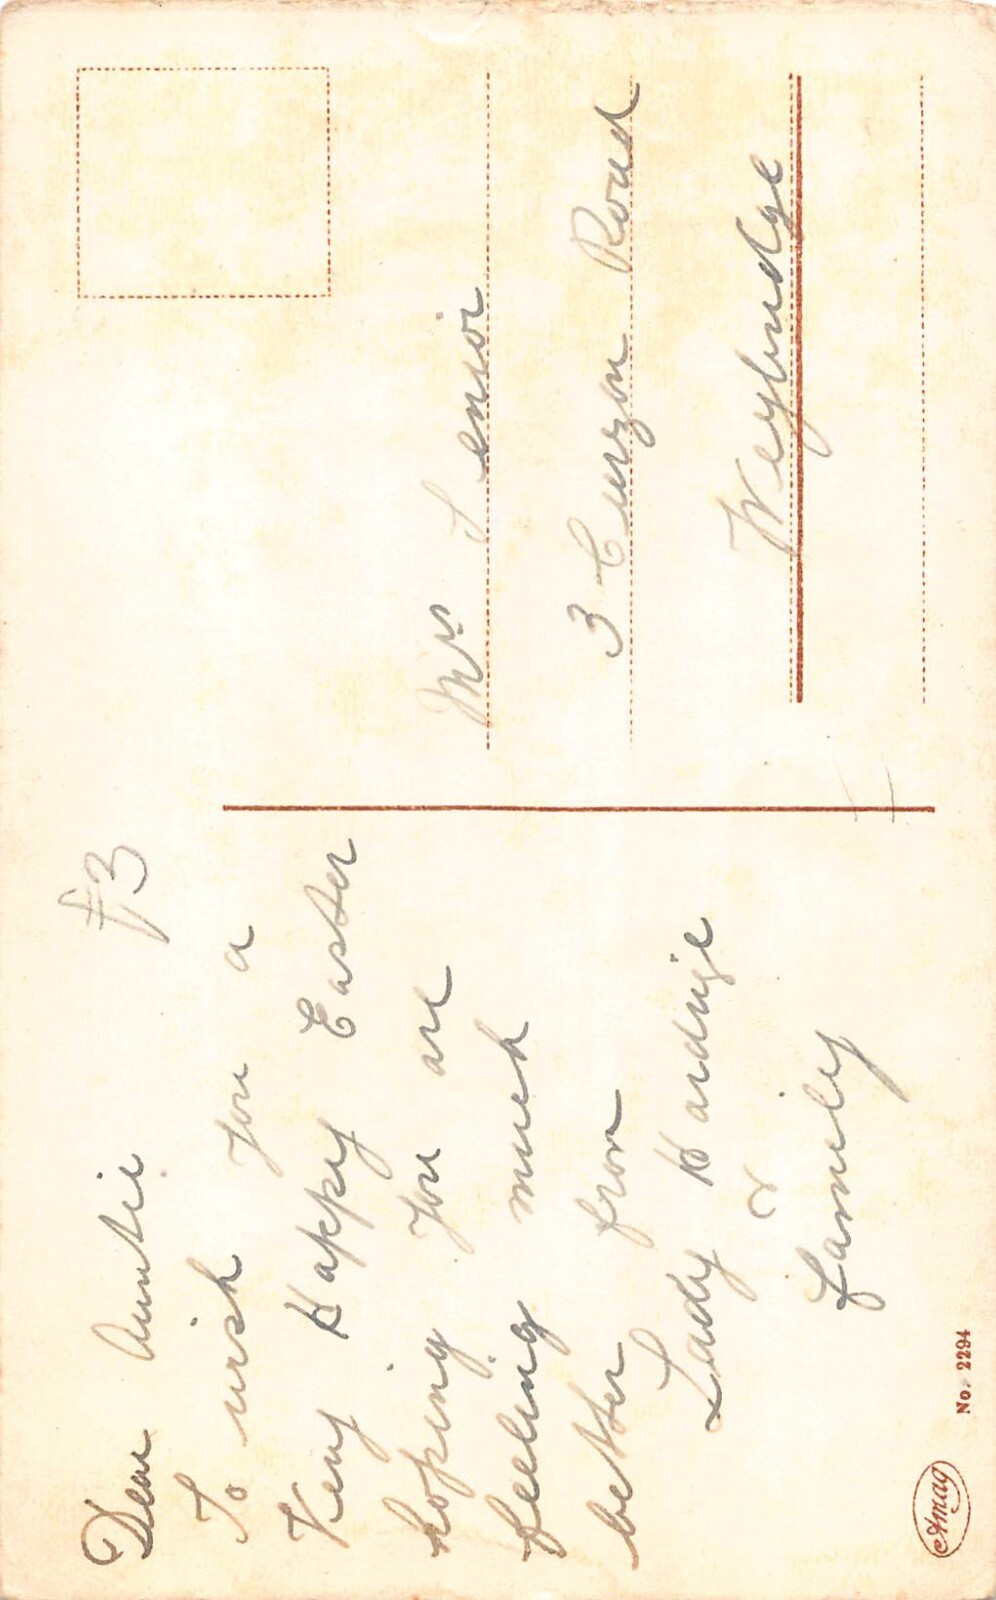 £3
Dear Auntie
To wish you a
Very Happy Easter
hoping you are
feeling much
better from
Lady Hardinge
&
family
Mrs Senior
3 Curzon Road
Weybridge
Amag
No. 2294